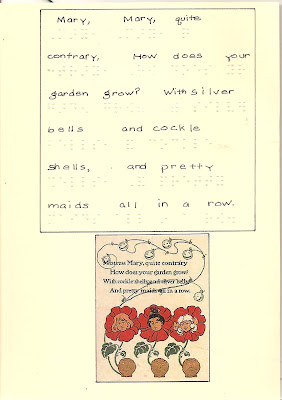 Mary, Mary, quite
contrary, How does your
garden grow? With silver
bells and cockle
shells, and pretty
maids all in a row.
Mistress Mary, quite contrary
How does your garden grow?
With cockle shells, and silver bells,
And pretty maids all in a row.